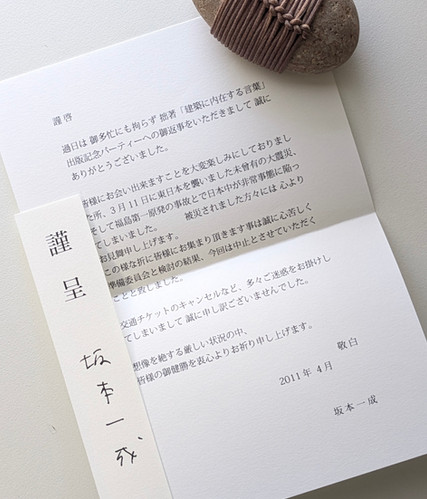 謹啓
過日は 御多忙にも拘らず 拙著「建築に内在する言葉」
出版記念パーティーへの御返事をいただきまして 誠に
ありがとうございました。
皆様にお会い出来ますことを大変楽しみにしておりまし
た所、3月11日に東日本を襲いました未曾有の大震災、
そして福島第一原発の事故とで日本中が非常事態に陥っ
てしまいました。 被災されました方々には 心より
お見舞申し上げます。
この様な折に皆様にお集まり頂きます事は誠に心苦しく
準備委員会と検討の結果、今回は中止とさせていただく
ことと致しました。
交通チケットのキャンセルなど、多々ご迷惑をお掛けし
てしまいまして 誠に申し訳ございませんでした。
想像を絶する厳しい状況の中、
皆様の御健勝を衷心よりお祈り申し上げます。
敬白
2011年 4月
坂本一成
謹呈
坂本一成